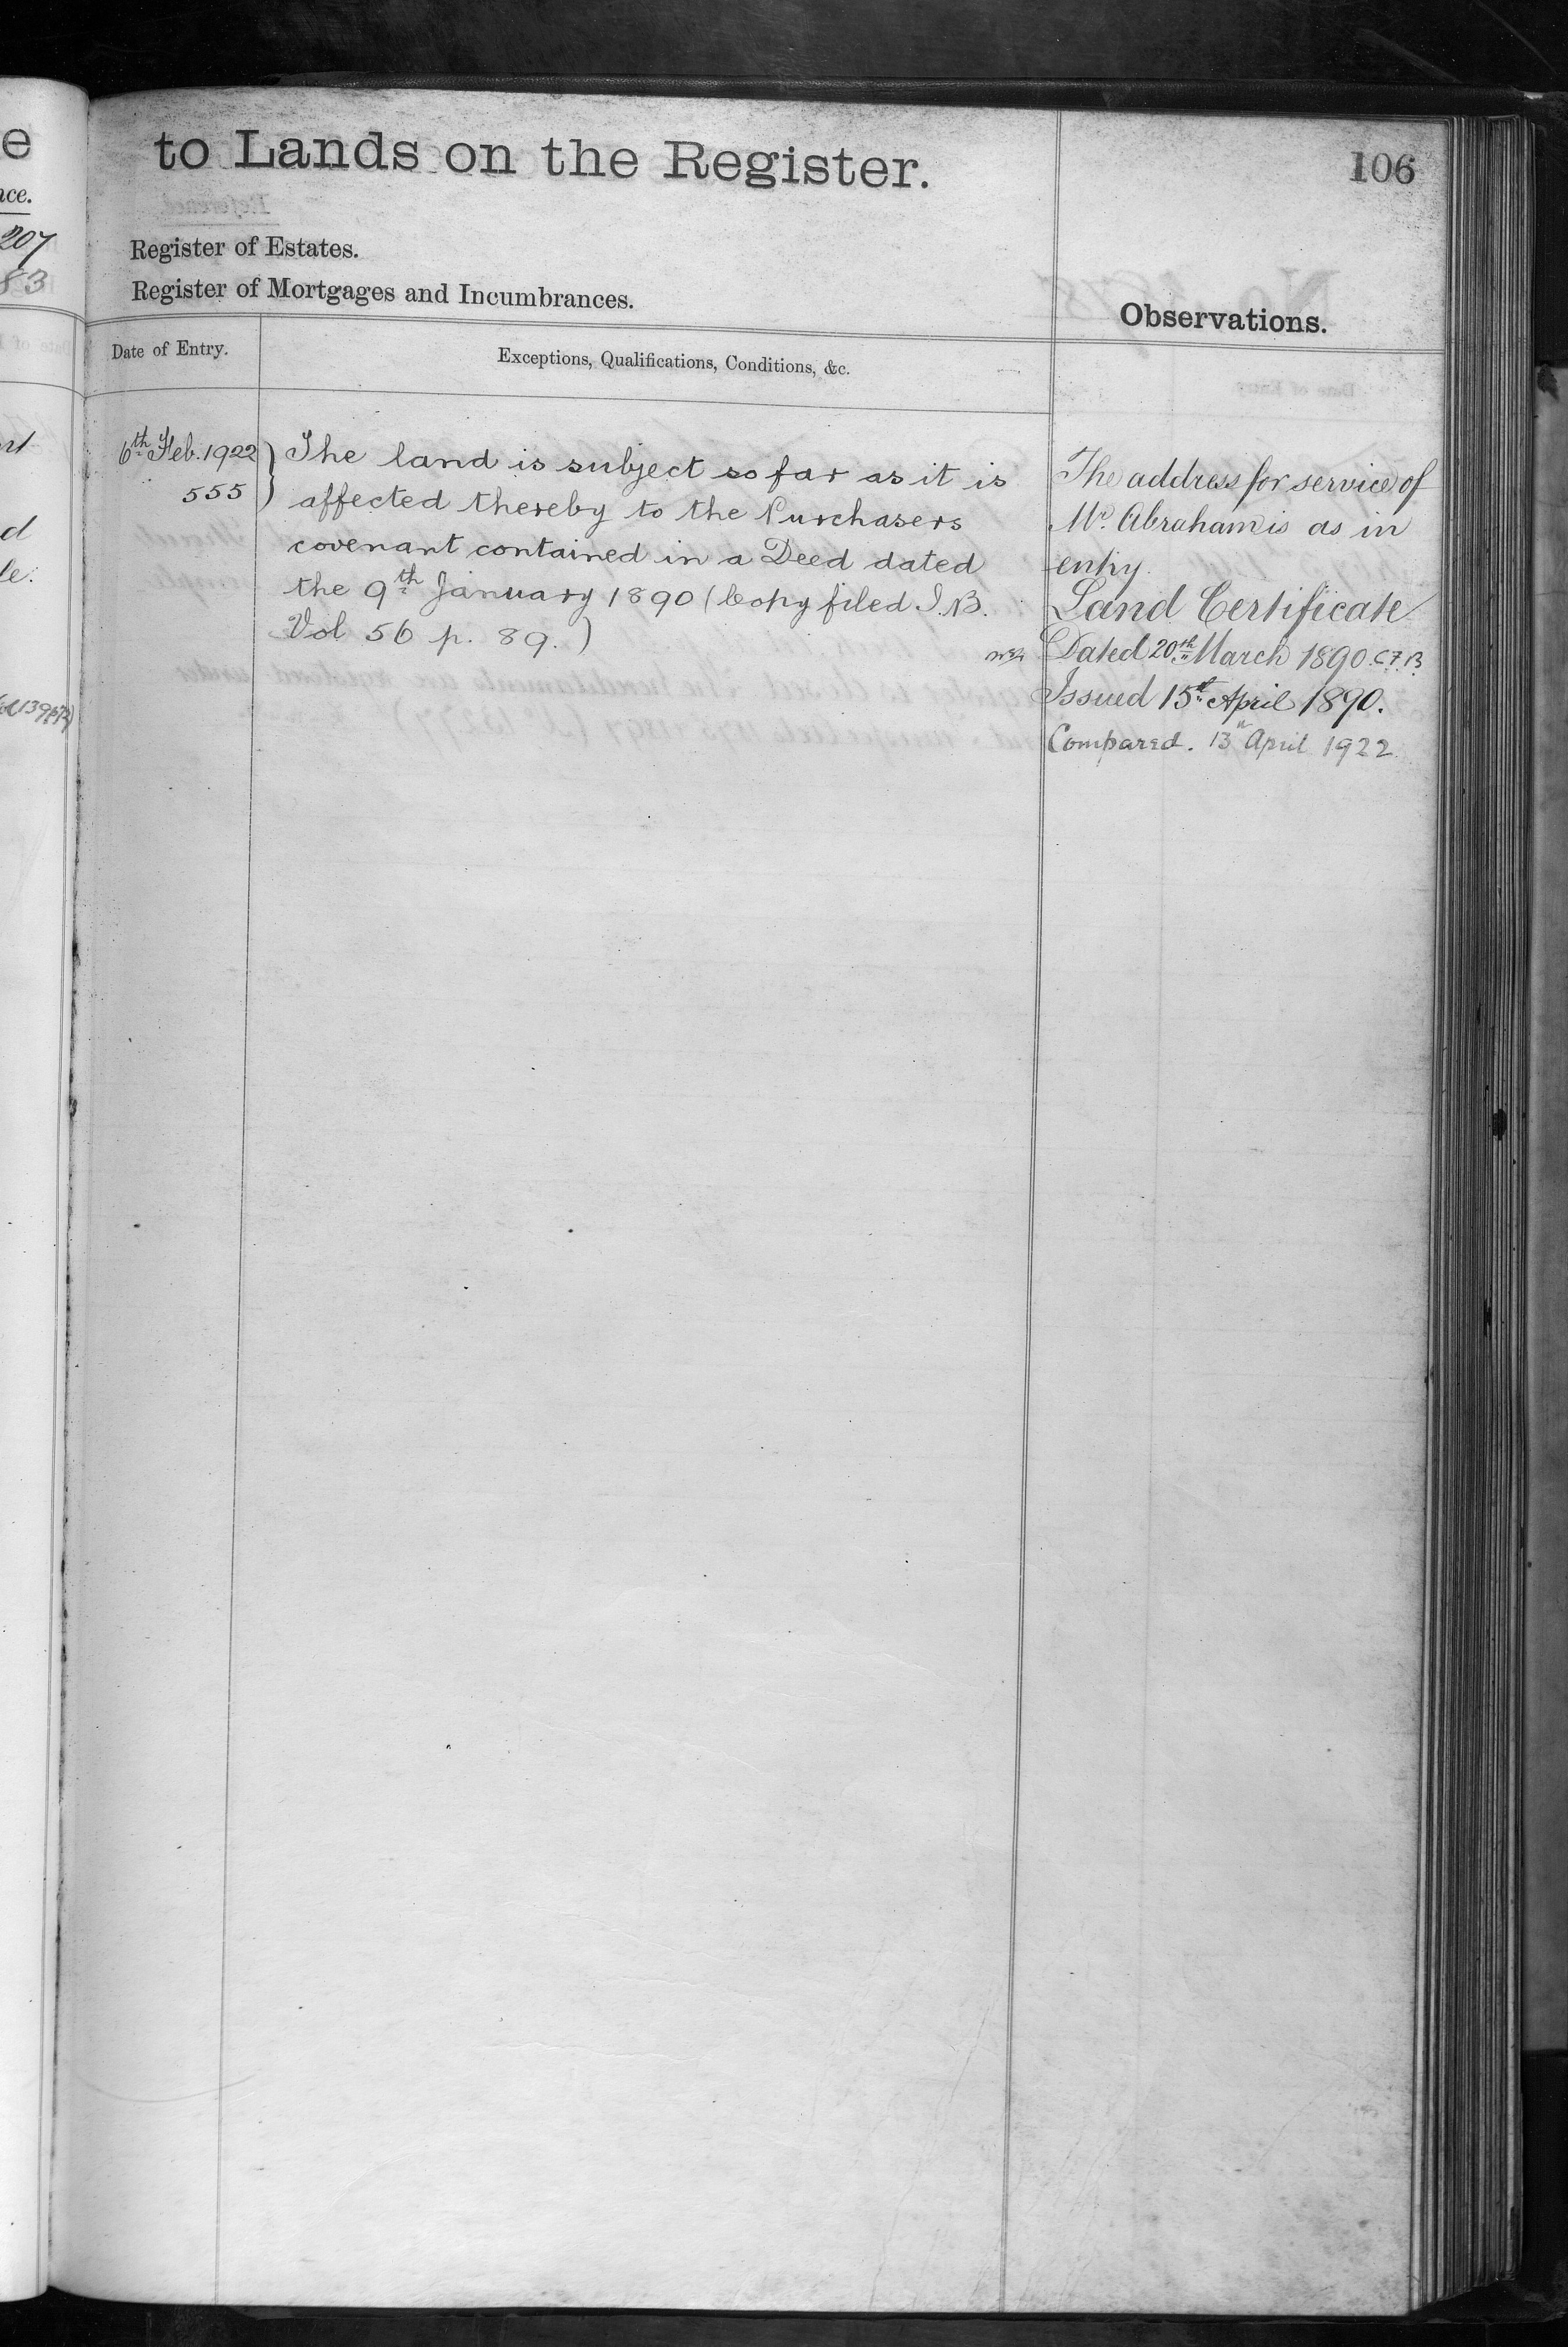 e
nce.
207
83
to Lands on the Register.
106
Register of Estates.
Register of Mortgages and Incumbrances.
Observations.
Date of Entry.
Exceptions, Qualifications, Conditions, &c.
6th Feb. 1922
555
The land is subject so far as it is
affected thereby to the Purchasers
covenant contained in a Deed dated
the 9th January 1890 (Copy filed I.B.
Vol 56 p. 89.)
The address for service of
Mr. Abraham is as in
entry.
Land Certificate
Dated 20th March 1890. C.F.B.
Issued 15th April 1890.
Compared. 13th April 1922
d
le.